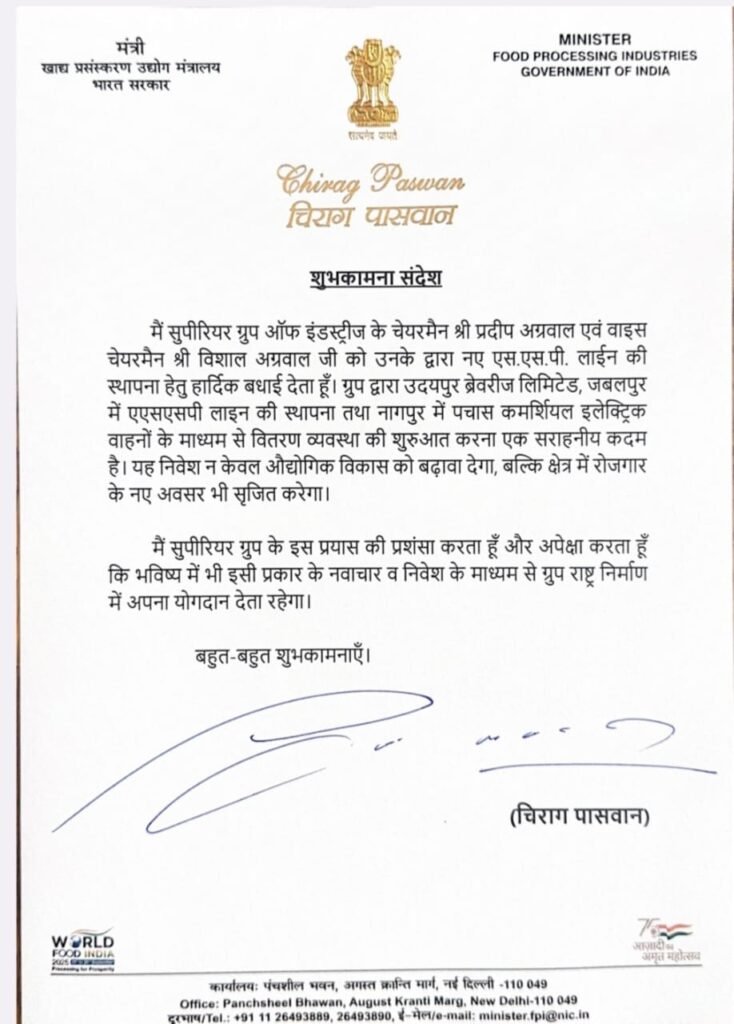 मंत्री
खाद्य प्रसंस्करण उद्योग मंत्रालय
भारत सरकार
सत्यमेव जयते
MINISTER
FOOD PROCESSING INDUSTRIES
GOVERNMENT OF INDIA
Chirag Paswan
चिराग पासवान
शुभकामना संदेश
मैं सुपीरियर ग्रुप ऑफ इंडस्ट्रीज के चेयरमैन श्री प्रदीप अग्रवाल एवं वाइस
चेयरमैन श्री विशाल अग्रवाल जी को उनके द्वारा नए एस.एस.पी. लाईन की
स्थापना हेतु हार्दिक बधाई देता हूँ। ग्रुप द्वारा उदयपुर ब्रेवरीज लिमिटेड, जबलपुर
में एएसएसपी लाइन की स्थापना तथा नागपुर में पचास कमर्शियल इलेक्ट्रिक
वाहनों के माध्यम से वितरण व्यवस्था की शुरुआत करना एक सराहनीय कदम
है। यह निवेश न केवल औद्योगिक विकास को बढ़ावा देगा, बल्कि क्षेत्र में रोजगार
के नए अवसर भी सृजित करेगा।
मैं सुपीरियर ग्रुप के इस प्रयास की प्रशंसा करता हूँ और अपेक्षा करता हूँ
कि भविष्य में भी इसी प्रकार के नवाचार व निवेश के माध्यम से ग्रुप राष्ट्र निर्माण
में अपना योगदान देता रहेगा।
बहुत-बहुत शुभकामनाएँ।
(चिराग पासवान)
WORLD
FOOD INDIA
2025
Processing for Prosperity
75
आज़ादी का
अमृत महोत्सव
कार्यालयः पंचशील भवन, अगस्त क्रान्ति मार्ग, नई दिल्ली -110 049
Office: Panchsheel Bhawan, August Kranti Marg, New Delhi-110 049
दूरभाष/Tel.: +91 11 26493889, 26493890, ई-मेल/e-mail: minister.fpi@nic.in